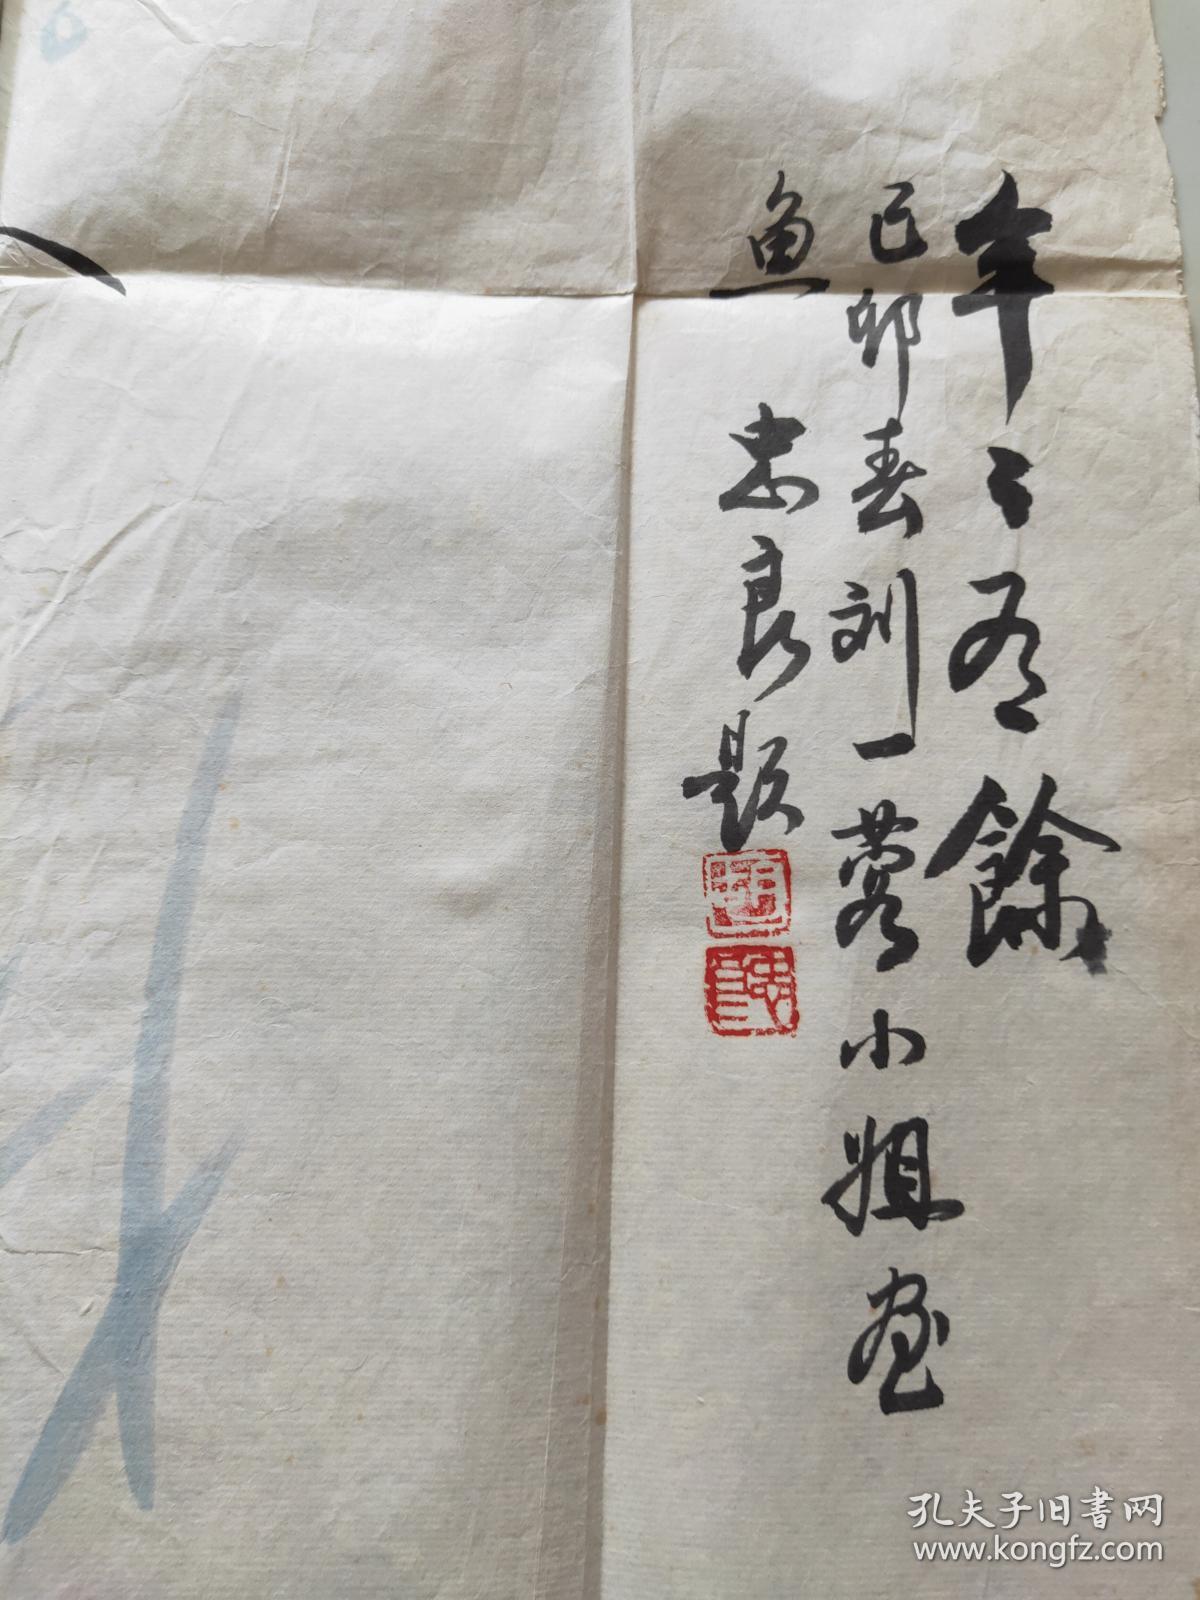 年〻有餘
己卯春刘一蓉小姐画
鱼 忠良题
孔夫子旧书网
www.kongfz.com